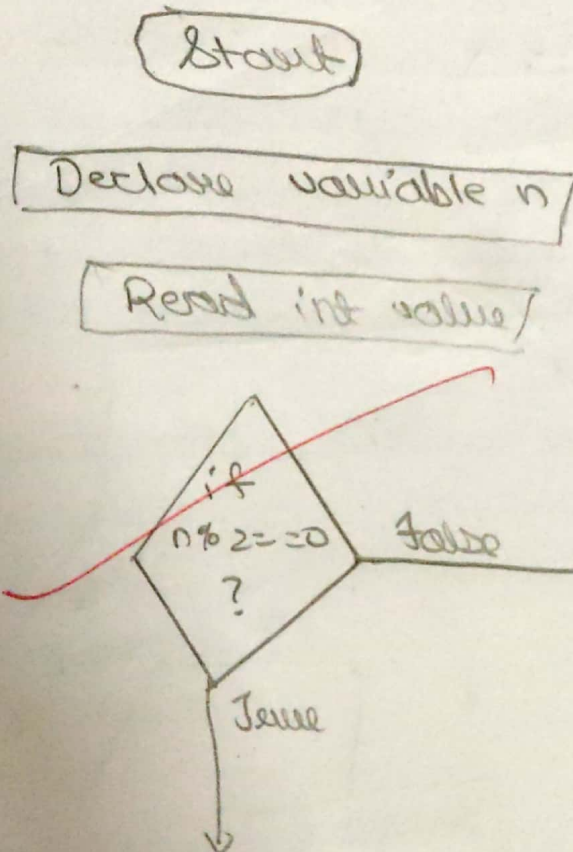 Start
Declare variable n
Read int value
if
n%2==0
?
False
True